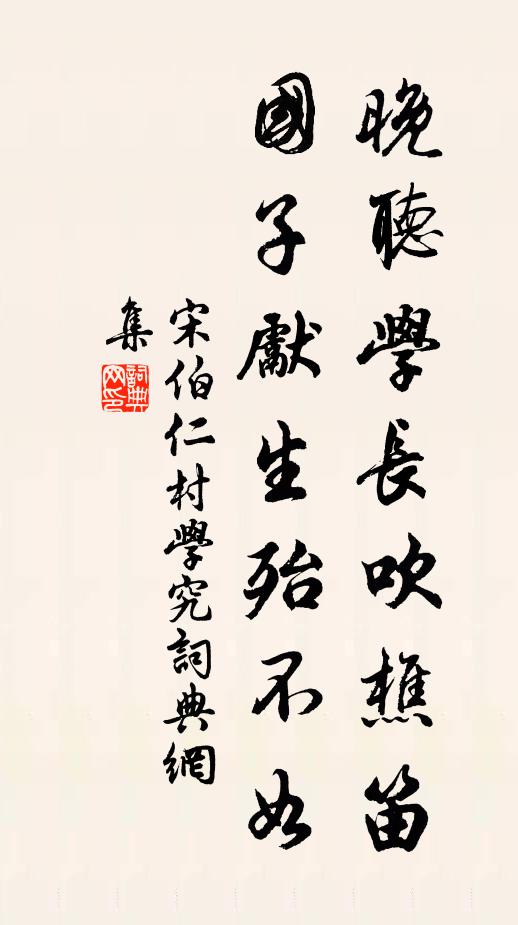 晚聽學長吹樵笛
國子獻生殆不如
宋伯仁村學究詞典網
集
詞典网印